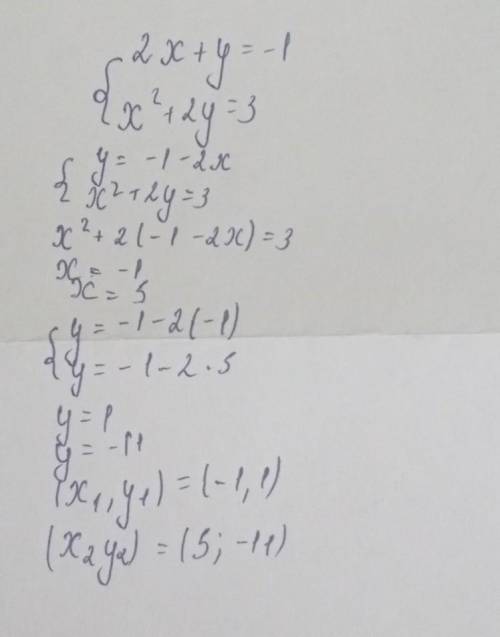 { 2x + y = -1
x² + 2y = 3
{ y = -1 - 2x
x² + 2y = 3
x² + 2(-1 - 2x) = 3
x = -1
x = 5
{ y = -1 - 2(-1)
y = -1 - 2 · 5
y = 1
y = -11
(x₁, y₁) = (-1, 1)
(x₂ y₂) = (5; -11)